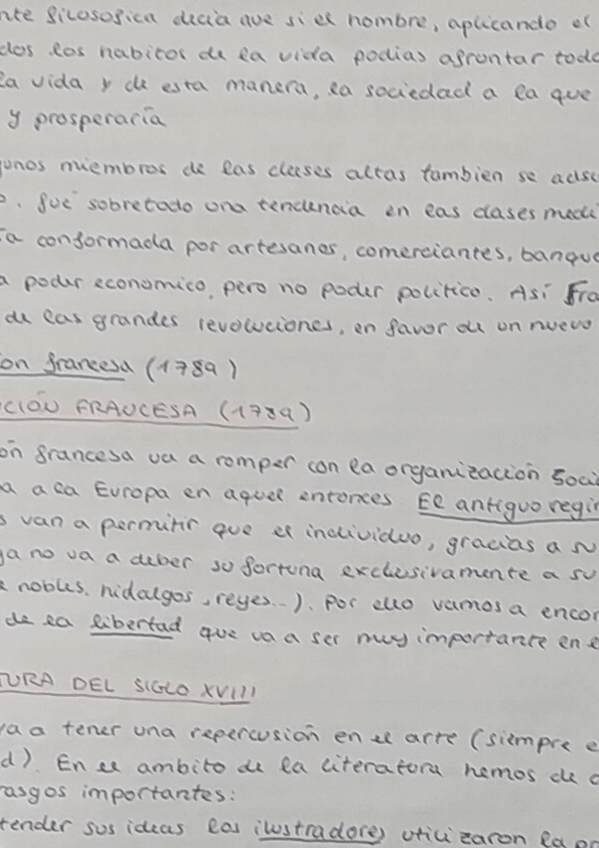 nte filosofica decia que si el hombre, aplicando el
dos los habitos de la vida podias afrontar todo
la vida y de esta manera, la sociedad a la que
y prosperaría
gunos miembros de las clases altas tambien se adsc
o. fue sobretodo una tendencia en las clases medi
a conformada por artesanos, comerciantes, banque
a poder economico, pero no poder politico. Así Fra
de las grandes revoluciones, en favor de un nuevo
ion francesa (1789)
CIÓN FRANCESA (1789)
ón francesa va a romper con la organización soci
a a la Europa en aquel entonces. El antiguo regi
s van a permitir que el individuo, gracias a su
ya no va a deber su fortuna exclusivamente a su
e nobles, hidalgos, reyes...). Por ello vamos a encon
de la libertad que va a ser muy importante en e
TURA DEL SIGLO XVIII
va a tener una repercusión en el arte (siempre e
d). En el ambito de la literatura hemos de d
rasgos importantes:
tender sus ideas los ilustradores utilizaron la pr